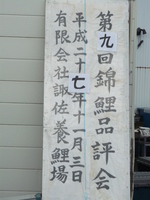 第九回錦鯉品評会
平成二十七年十一月三日
有限会社諏佐養鯉場